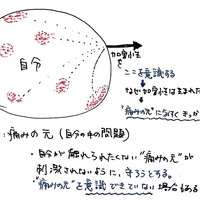 自分
加害性
を
ここを意識する
↓
なぜ加害性は生まれた
↓
"痛みの元"に気づくきっか
:痛みの元(自分の中の問題)
・自分が触れられたくない"痛みの元"が
刺激されないように、守ろうとする。
"痛みの元"を意識できていない場合もある